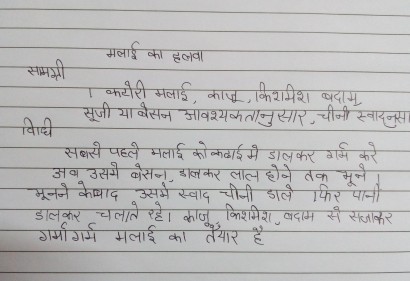 मलाई का हलवा
सामग्री
1 कटोरी मलाई, काजू, किशमिश बदाम,
सूजी या बेसन आवश्यकतानुसार, चीनी स्वादनुसा
विधि
सबसे पहले मलाई को कढाई मे डालकर गर्म करे
अब उसमे बेसन, डालकर लाल होने तक भूने।
भूनने के बाद उसमे स्वाद चीनी डाले। फिर पानी
डालकर चलाते रहे। काजू, किशमिश, बदाम से सजाकर
गर्मागर्म मलाई का तैयार है